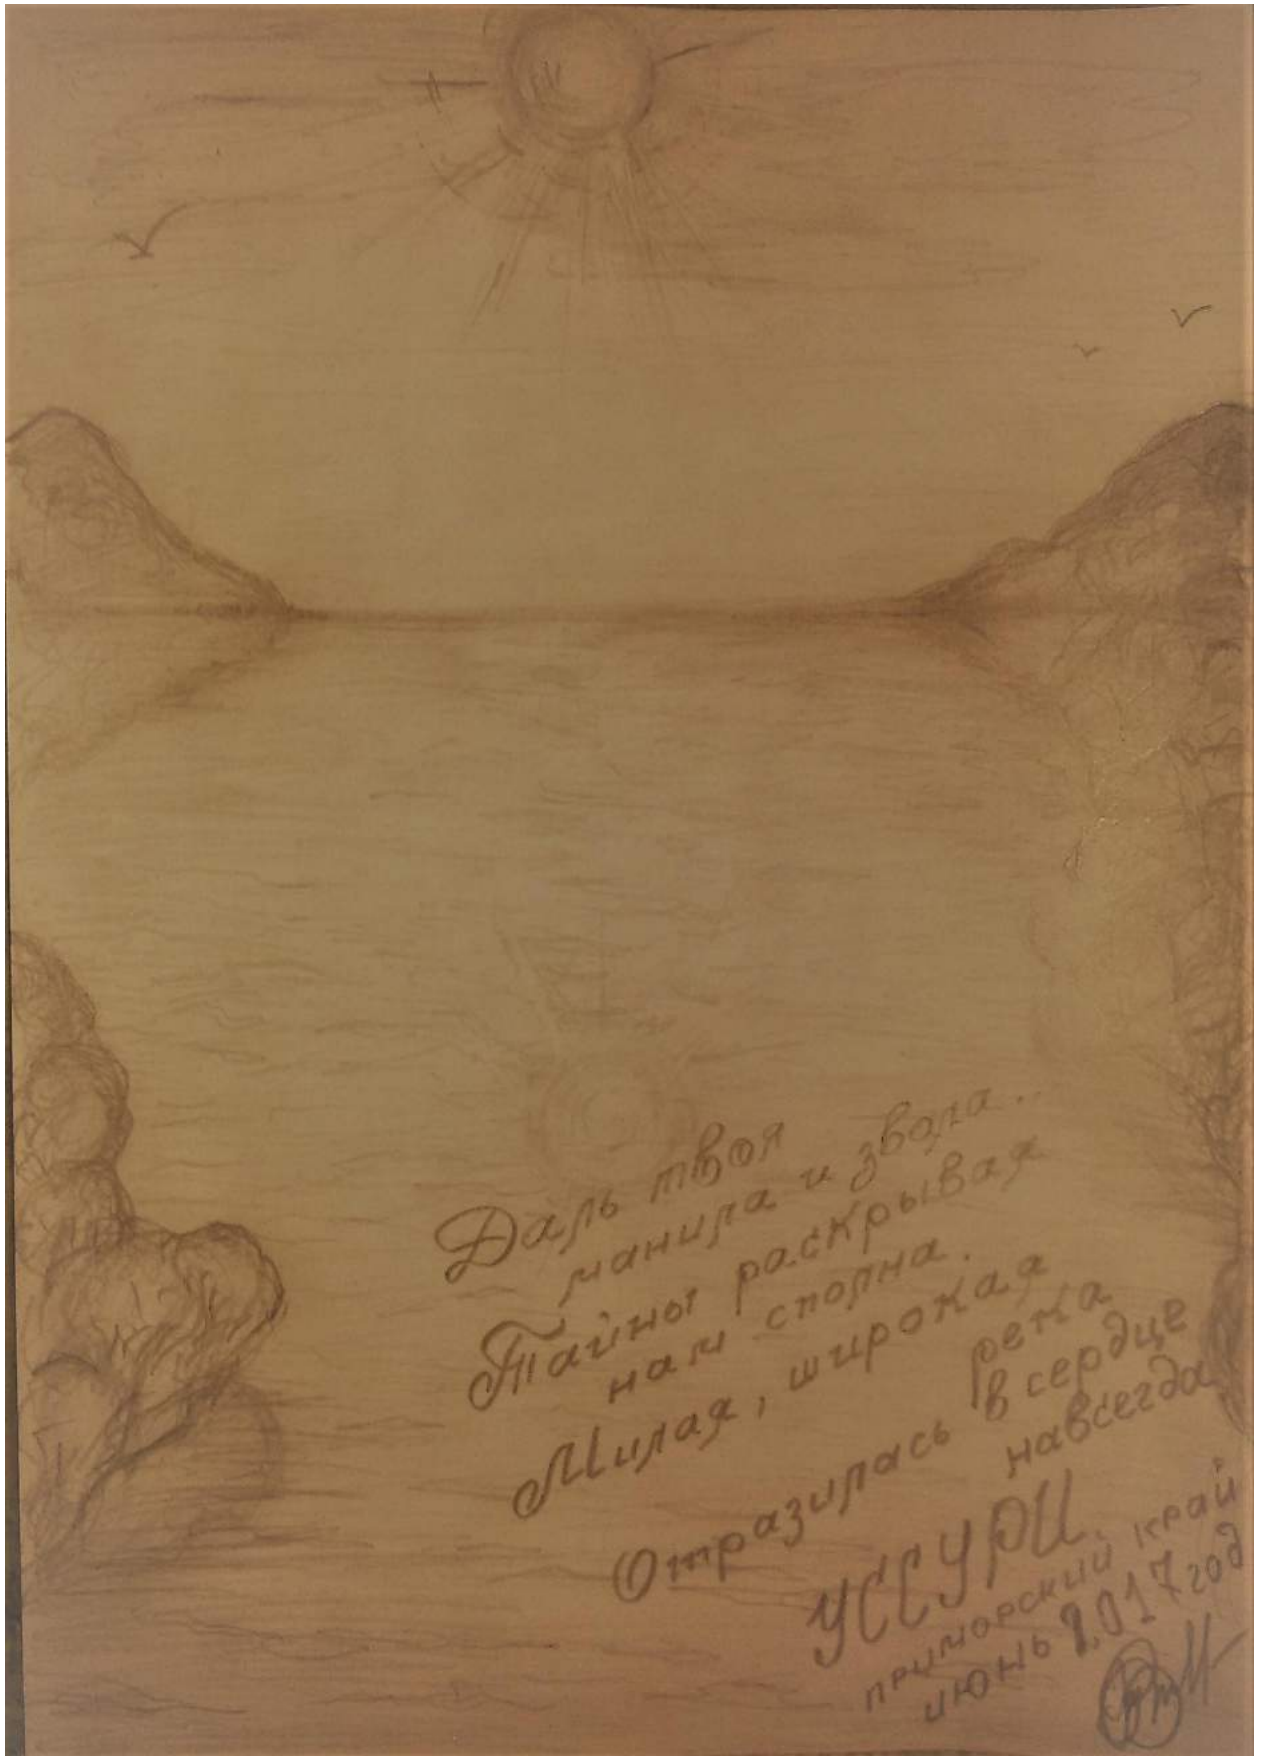 Даль твоя
манила и звала..
Тайны раскрывая
нам сполна.
Милая, широкая
река
Отразилась в сердце
навсегда
УССУРИ.
приморский край
июнь 2017 год